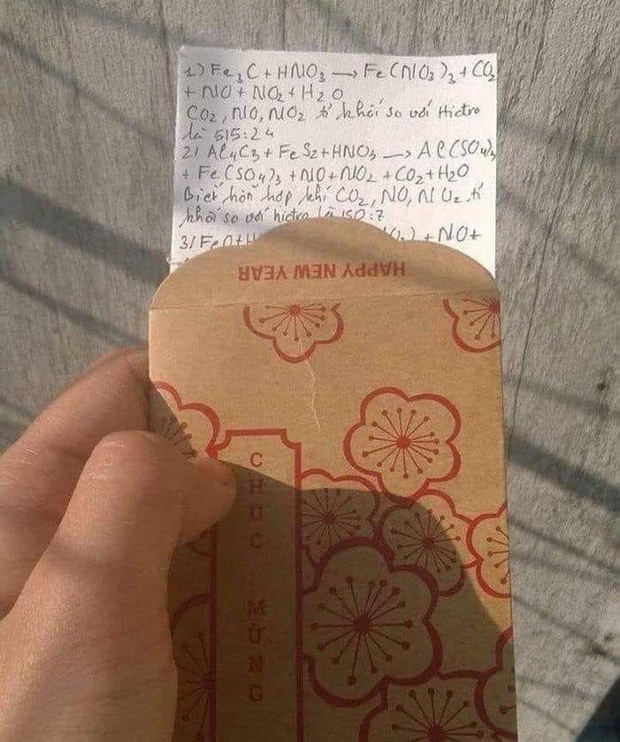 1) Fe₃C + HNO₃ → Fe(NO₃)₃ + CO₂
+ NO + NO₂ + H₂O
CO₂, NO, NO₂ tỉ khối so với Hiđro
là 515:24
2) Al₄C₃ + FeS₂ + HNO₃ → Al(SO₄)₃
+ Fe(SO₄)₃ + NO + NO₂ + CO₂ + H₂O
Biết hỗn hợp khí CO₂, NO, NO₂ tỉ
khối so với hiđro là 150:7
3) FeO + + NO +
HAPPY NEW YEAR
CHÚC MỪNG